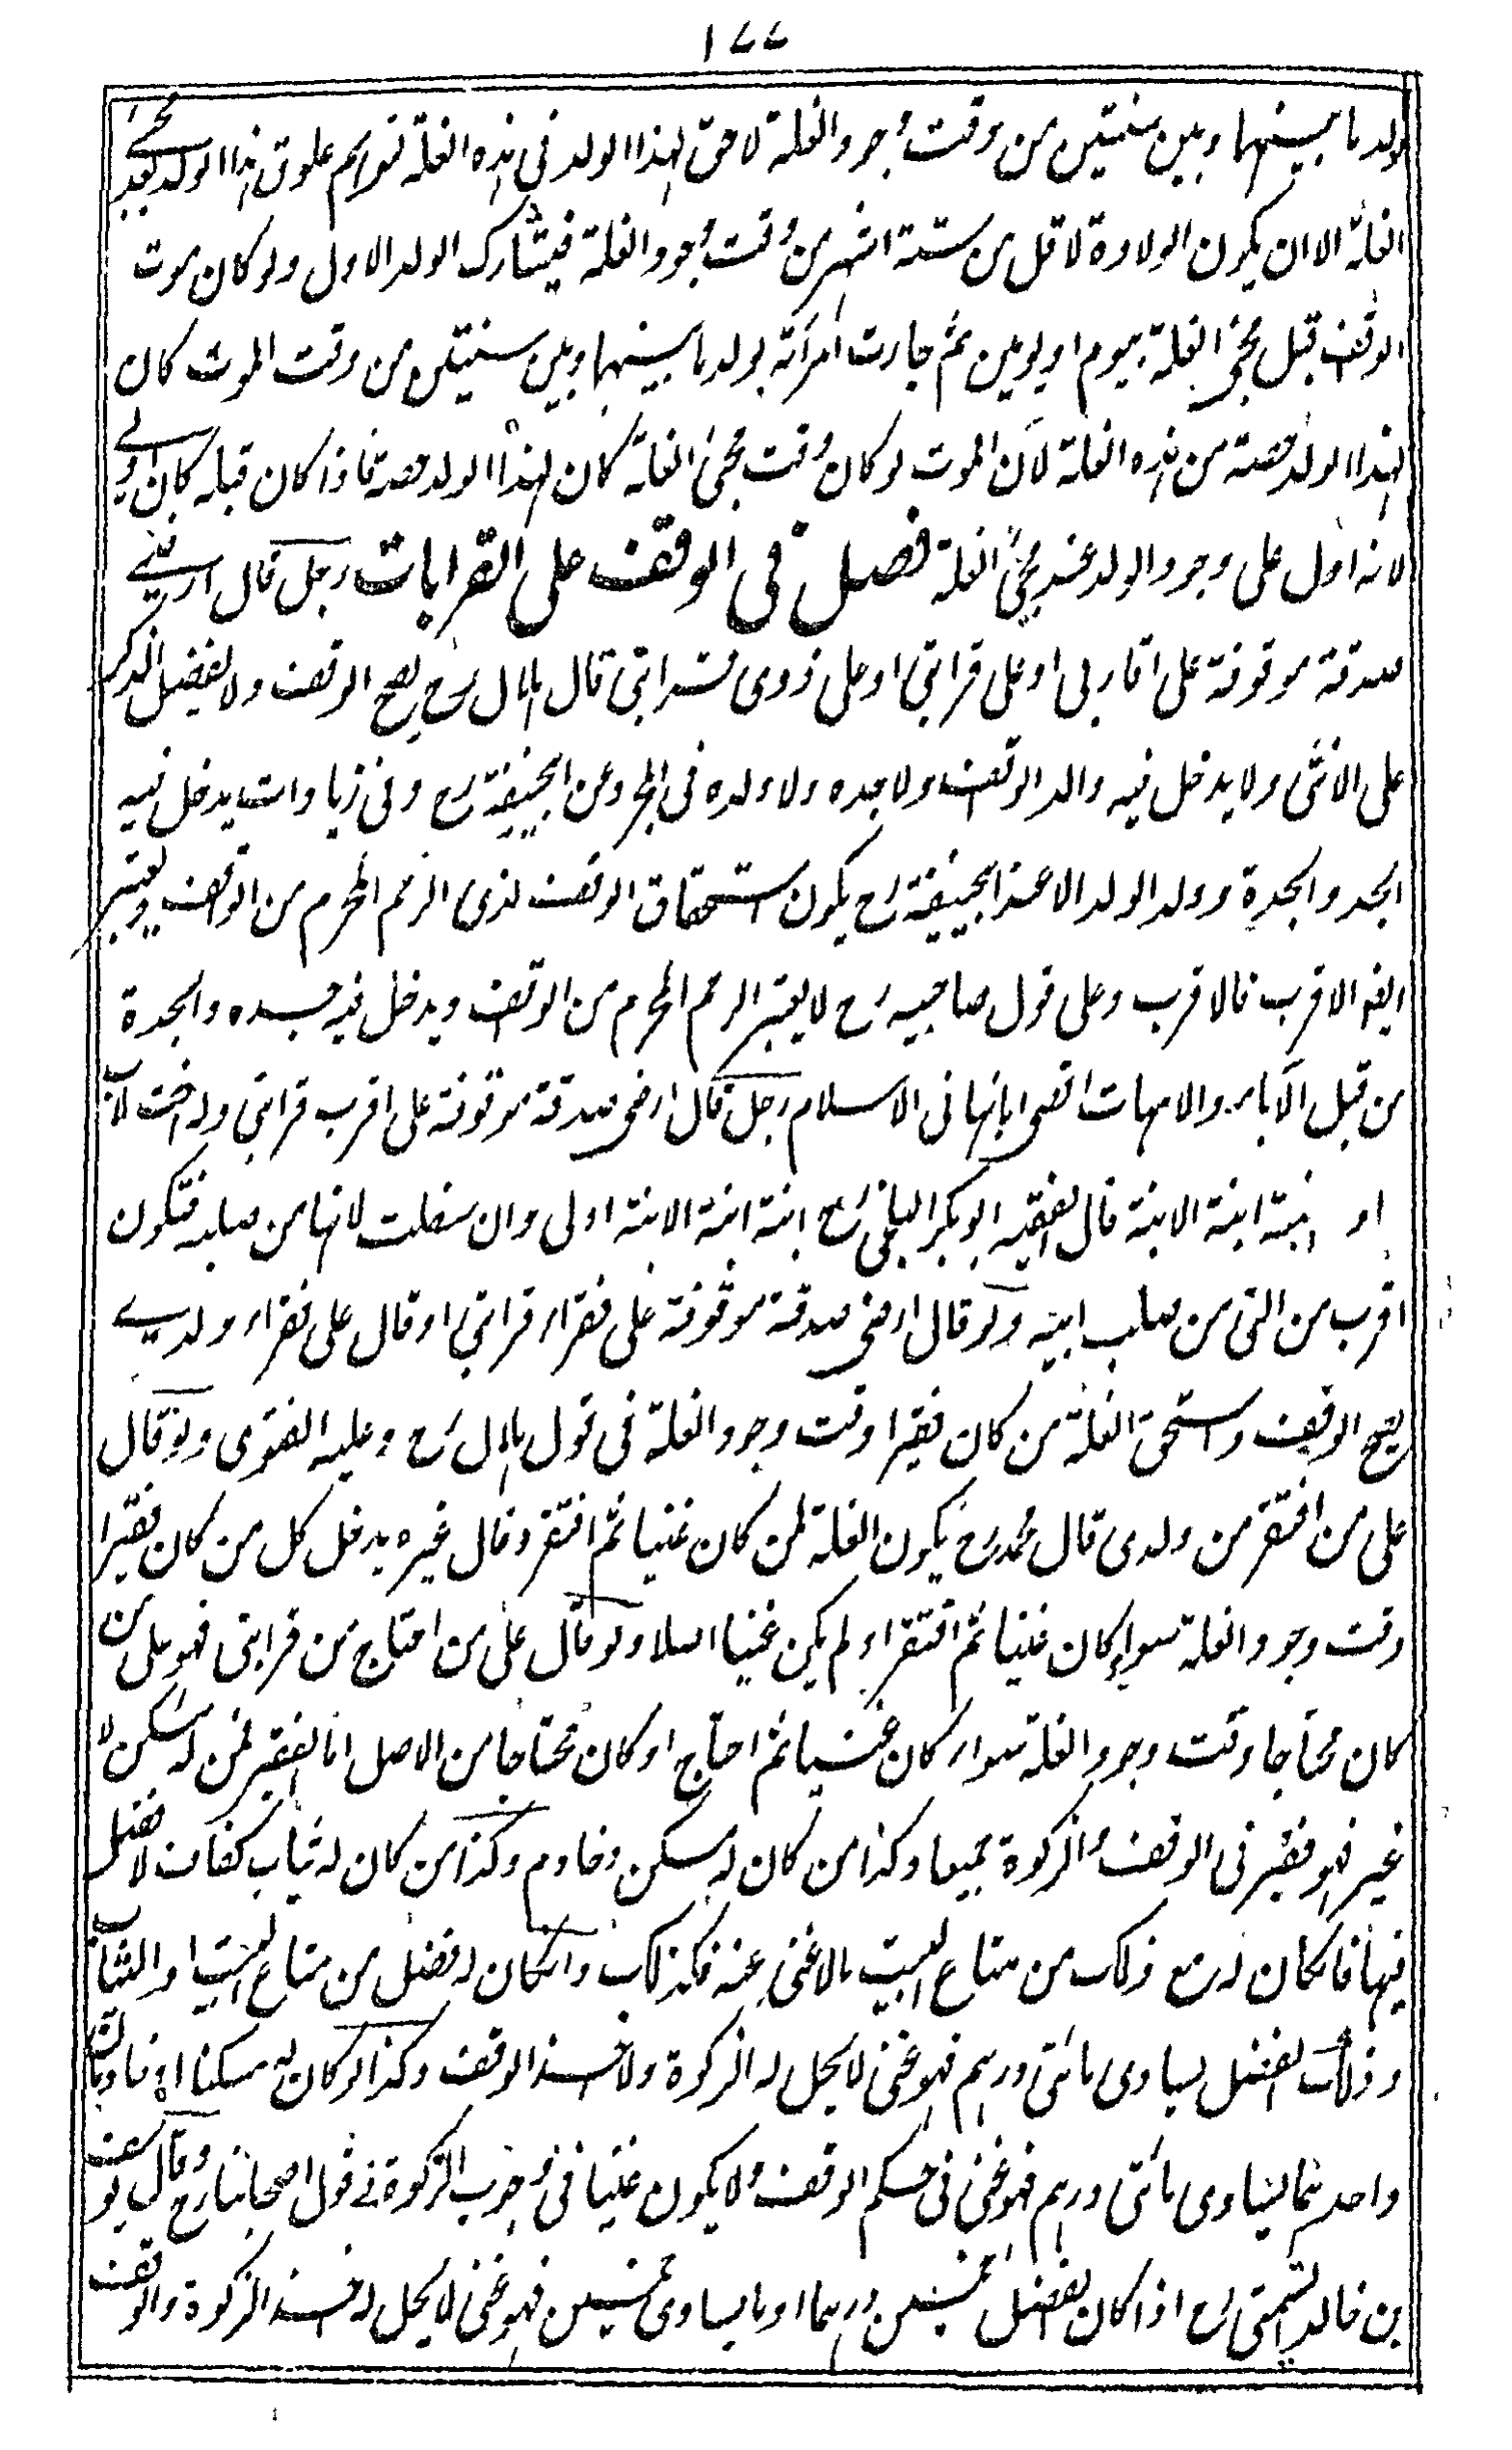 ١٧٧
بولد ما بينها وبين سنتين من وقت وجود الغلة لا حق لهذا الولد في هذه الغلة لتوهم علوق هذا الولد بعد مجئ
الغلة الا ان يكون الولادة لاقل من ستة اشهر من وقت وجود الغلة فيشارك الولد الاول ولو كان موت
الواقف قبل مجئ الغلة بيوم او يومين ثم جاءت امرأته بولد ما بينها وبين سنتين من وقت الموت كان
لهذا الولد حصة من هذه الغلة لان الموت لو كان وقت مجئ الغلة كان لهذا الولد حصة فاذا كان قبله كان اولى
لانه ادل على وجود الولد عند مجئ الغلة فصل في الوقف على القرابات رجل قال ارضي
صدقة موقوفة على اقاربي او على قرابتي او على ذوي قرابتي قال هلال رح يصح الوقف ولا يفضل الذكر
على الانثى ولا يدخل فيه والد الواقف ولا جده ولا ولده في المجرد عن ابيحنيفة رح وفي زيادات يدخل فيه
الجد والجدة وولد الولد الا عند ابيحنيفة رح يكون استحقاق الوقف لذى الرحم المحرم من الواقف ويعتبر
ايضا الاقرب فالاقرب وعلى قول صاحبيه رح لا يعتبر الرحم المحرم من الوقف ويدخل فيه جده والجدة
من قبل الآباء والامهات اقصى ابائها في الاسلام رجل قال ارضي صدقة موقوفة على اقرب قرابتي وله اخت لاب
او ابنة ابنة الابنة قال الفقيه ابوبكر البلخي رح ابنة ابنة الابنة اولى وان سفلت لانها من صلبه فتكون
اقرب من التي من صلب ابيه ولو قال ارضي صدقة موقوفة على فقراء قرابتي او قال على فقراء ولدي
يصح الوقف واستحق الغلة من كان فقيرا وقت وجود الغلة في قول هلال رح وعليه الفتوى ولو قال
على من افتقر من ولدي قال محمد رح يكون الغلة لمن كان غنيا ثم افتقر وقال غيره يدخل كل من كان فقيرا
وقت وجود الغلة سواء كان غنيا ثم افتقر او لم يكن غنيا اصلا ولو قال على من احتاج من قرابتي فهو على من
كان محتاجا وقت وجود الغلة سواء كان غنيا ثم احتاج او كان محتاجا من الاصل اما الفقير فمن له مسكن لا
غير فهو فقير في الوقف والزكوة جميعا وكذا من كان له مسكن وخادم وكذا من كان له ثياب كفاف لا فضل
فيها فانكان له مع ذلك من متاع البيت مالا غنى عنه فكذلك وانكان له فضل من متاع البيت او الثياب
وذلك الفضل يساوى مائتى درهم فهو غني لا يحل له الزكوة ولا اخذ الوقف وكذا لو كان له مسكنان او خادمان
واحدهما يساوى مائتى درهم فهو غني في حكم الوقف ولا يكون غنيا في وجوب الزكوة في قول اصحابنا رح وقال يوسف
بن خالد السمتي رح اذا كان الفضل خمسين درهما او ما يساوى خمسين فهو غني لا يحل له اخذ الزكوة والوقف